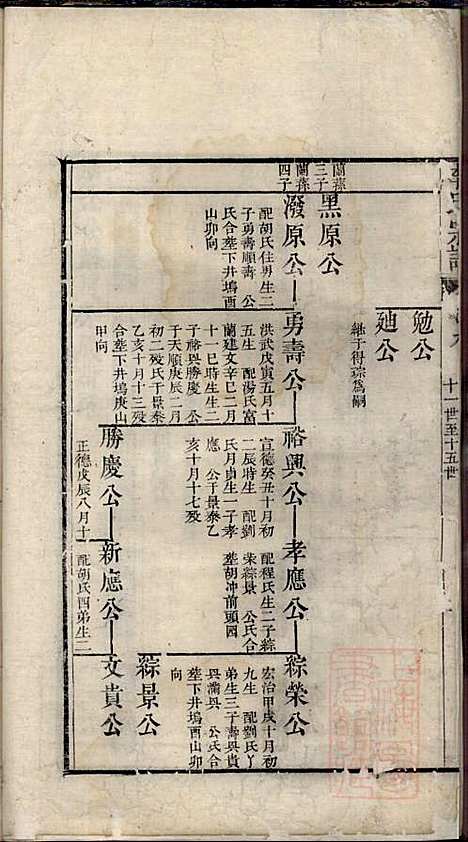 十一世至十五世
勉公
廸公
繼子得琮爲嗣
蘭蓀三子
黑原公
蘭蓀四子
潑原公
配胡氏住男生二
子勇壽順壽 公
氏合塟下井塢酉
山卯向
勇壽公
洪武戊寅五月十
五生 配湯氏富
蘭建文辛巳二月
十一巳時生生二
子裕興勝慶 公
于天順庚辰二月
初二殁氏于景泰
乙亥十月十三殁
合塟下井塢庚山
甲向
裕興公
宣德癸丑十月初
二辰時生 配劉
氏月貞生一子孝
應 公于景泰乙
亥十月十七殁
孝應公
配程氏生二子綜
榮綜景 公氏合
塟胡冲前頭園
綜榮公
宏治甲戌十月初
九生 配劉氏丫
弟生三子壽與貴
與滿與 公氏合
塟下井塢酉山卯
向
綜景公
勝慶公
正德戊辰八月十
新應公
配胡氏四弟生二
文貴公